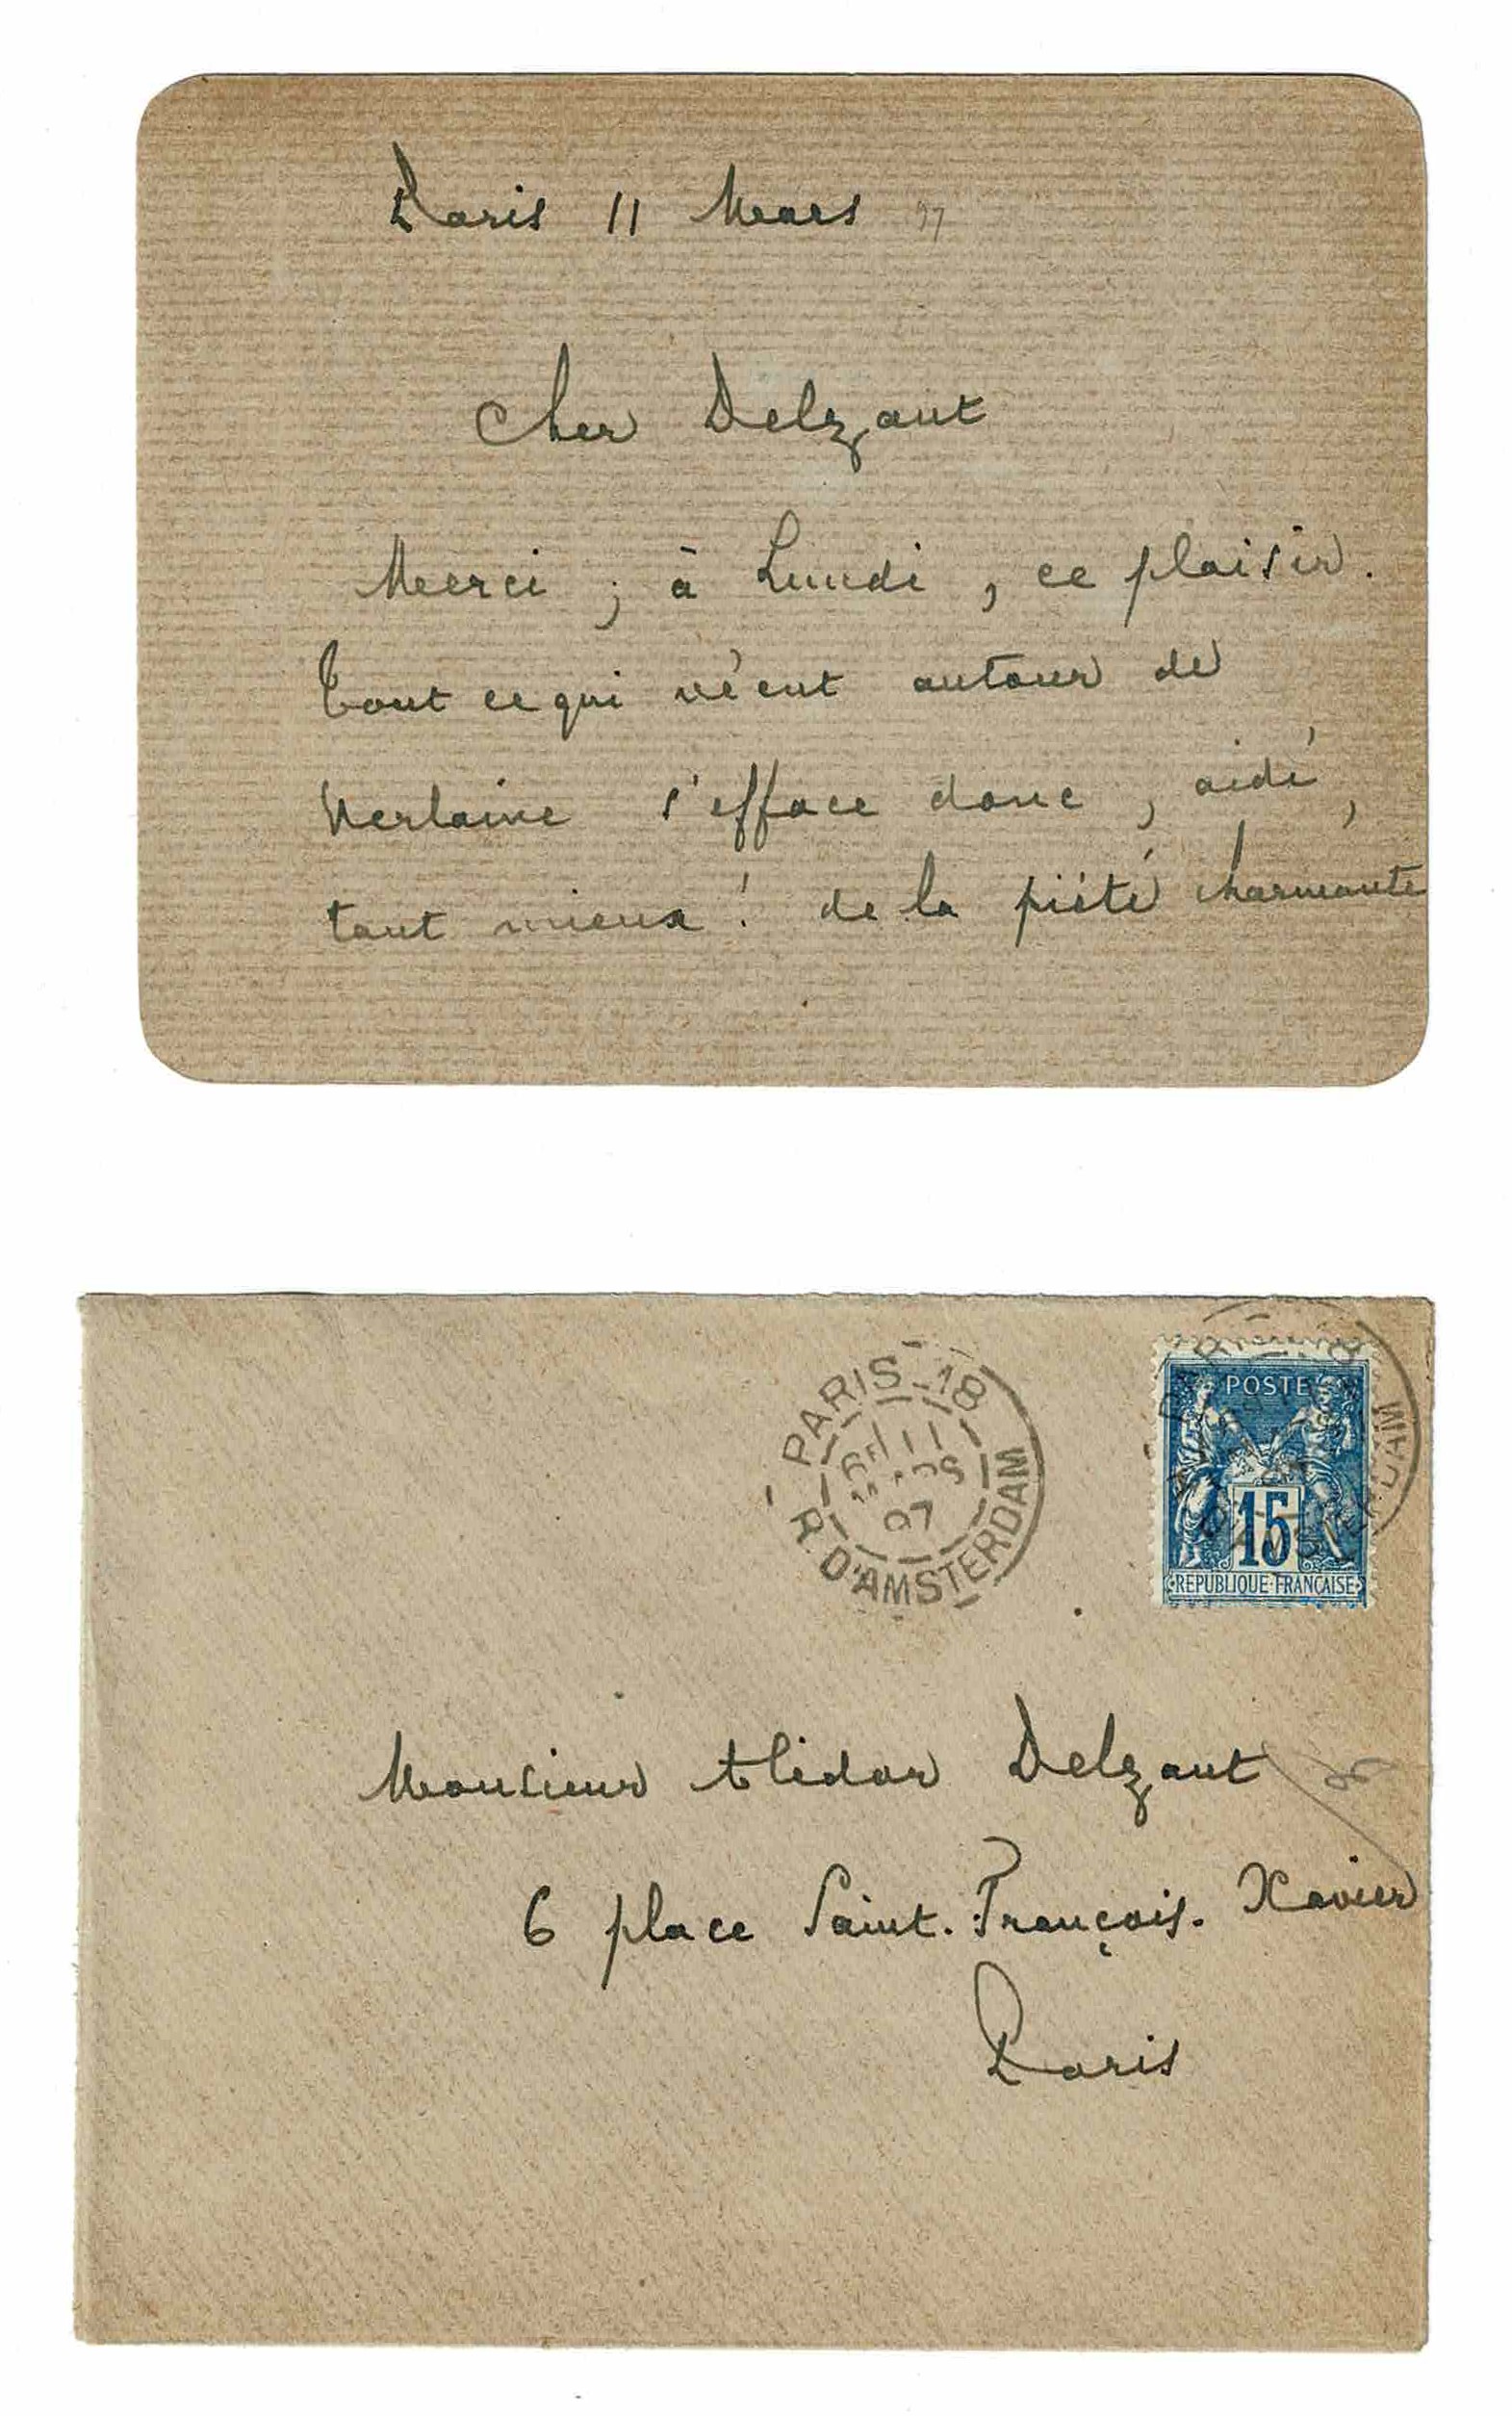 Paris 11 Mars 97
Cher Delzant
Merci ; à Lundi , ce plaisir.
Tout ce qui vécut autour de
Verlaine s'efface donc , aidé ,
tant mieux ! de la piété charmante
PARIS_18
6E 11
MARS
97
R. D'AMSTERDAM
POSTE
15
REPUBLIQUE FRANÇAISE
Monsieur Alidor Delzant
6 place Saint-François-Xavier
Paris